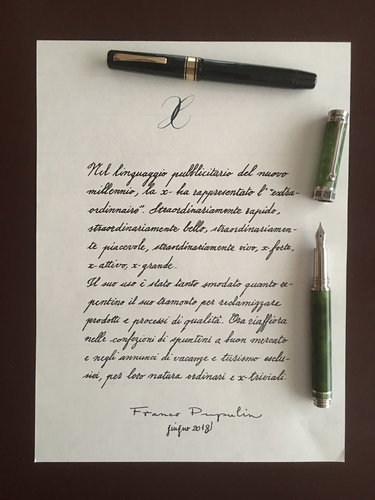 X
Nel linguaggio pubblicitario del nuovo
millennio, la x- ha rappresentato l'"extra-
ordinnaiso". Straordinariamente rapido,
straordinariamente bello, straordinariamen-
te piacevole, straordinariamente vivo, x-forte,
x-attivo, x-grande.
Il suo uso è stato tanto smodato quanto re-
pentino il suo tramonto per reclamizzare
prodotti e processi di qualità. Ora riaffiora
nelle confezioni di spuntini a buon mercato
e negli annunci di vacanze e turismo esclu-
sivi, per loro natura ordinari e x-triviali.
Franco Pupulin
giugno 2018